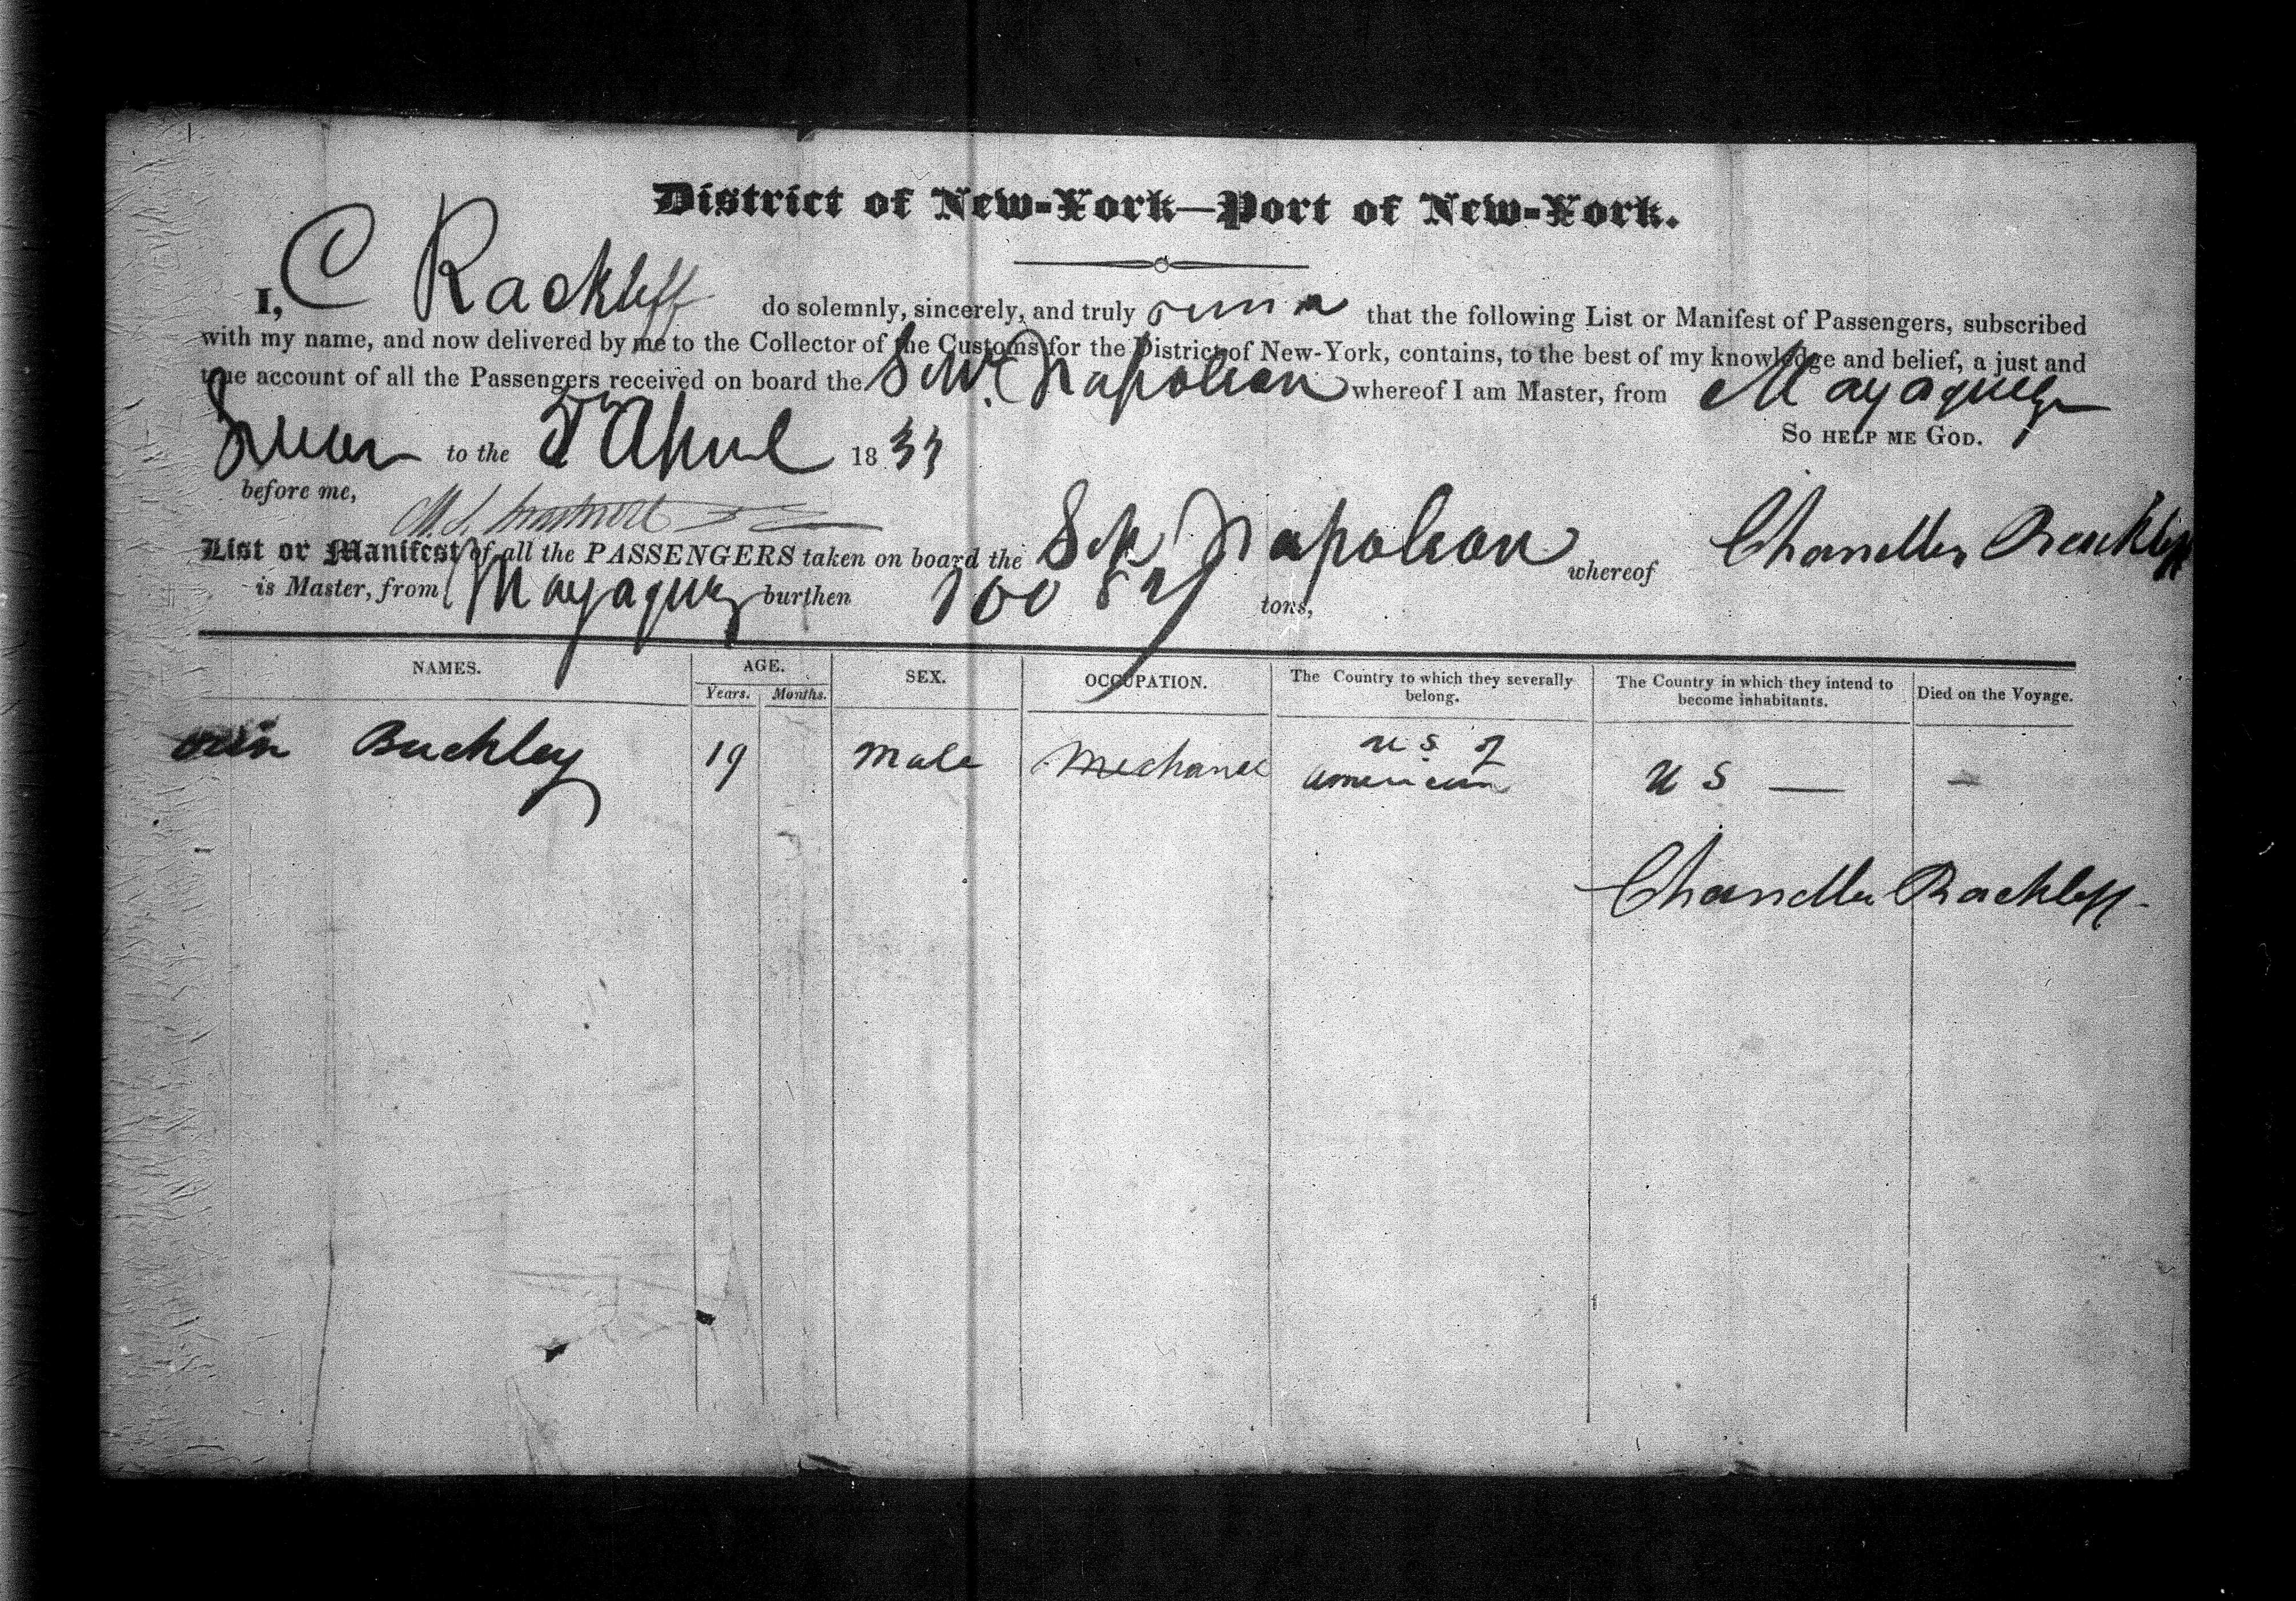 District of New-York—Port of New-York.
I, C Rackleff do solemnly, sincerely, and truly that the following List or Manifest of Passengers, subscribed
with my name, and now delivered by me to the Collector of the Customs for the District of New-York, contains, to the best of my knowledge and belief, a just and
true account of all the Passengers received on board the Schr. Napoleon whereof I am Master, from Mayaguez
So help me God.
Sworn to the 5th April 183
before me,
List or Manifest of all the PASSENGERS taken on board the Sch Napoleon whereof Chandler Rackleff
is Master, from Mayaguez burthen 160 tons,
NAMES. AGE. SEX. OCCUPATION. The Country to which they severally belong. The Country in which they intend to become inhabitants. Died on the Voyage.
Years. Months.
Buckley 19 Male Mechanic U S of American U S — —
Chandler Rackleff